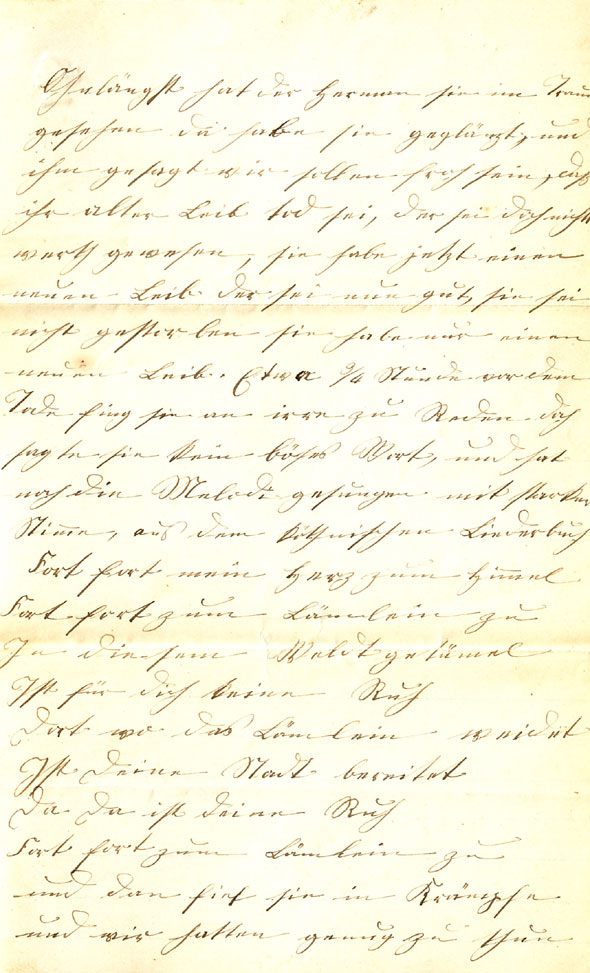 Ohnlängst hat der Herman sie im Traum
gesehen da habe sie geglänzt, und
ihm gesagt wir sollen froh sein, daß
ihr alter Leib tod sei, der sei doch nichts
werth gewesen, sie habe jetzt einen
neuen Leib der sei nun gut, sie sei
nicht gestorben sie habe nur einen
neuen Leib. Etwa 3/4 Stunde vor dem
Tode fing sie an irre zu Reden doch
sagte sie kein böses Wort, und hat
noch die Melodi gesungen mit starker
Stimme, aus dem köthnischen Liederbuch
Fort fort mein Herz zum Himel
Fort fort zum Lämlein zu
In diesem Weldtgetümel
Ist für dich keine Ruh
Dort wo das Lämlein weidet
Ist deine Stadt bereitet
Da Da ist deine Ruh
Fort fort zum Lämlein zu
und dan fiel sie in Krämpfe
und wir hatten genug zu thun